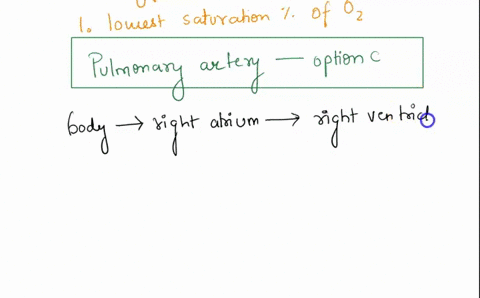 1. lowest saturation % of O2
Pulmonary artery — option C
body → right atrium → right ventricl